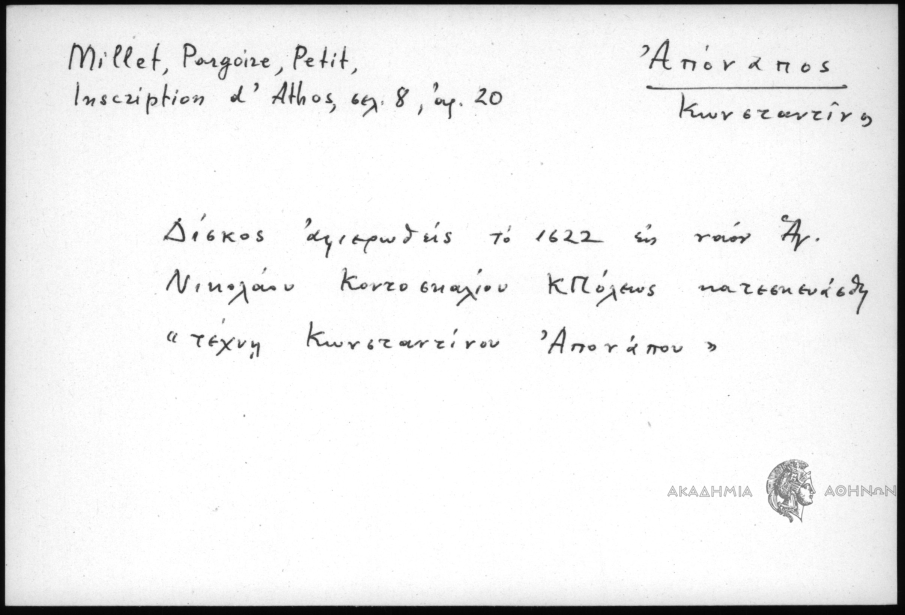 Millet, Pargoire, Petit,
Inscription d'Athos, σελ. 8, ἀρ. 20
Ἀπόναπος
Κωνσταντῖνος
Δίσκος ἀφιερωθείς τό 1622 εἰς ναόν Ἁγ.
Νικολάου Κοντοσκαλίου ΚΠόλεως κατεσκευάσθη
«τέχνῃ Κωνσταντίνου Ἀπονάπου»
ΑΚΑΔΗΜΙΑ ΑΘΗΝΩΝ